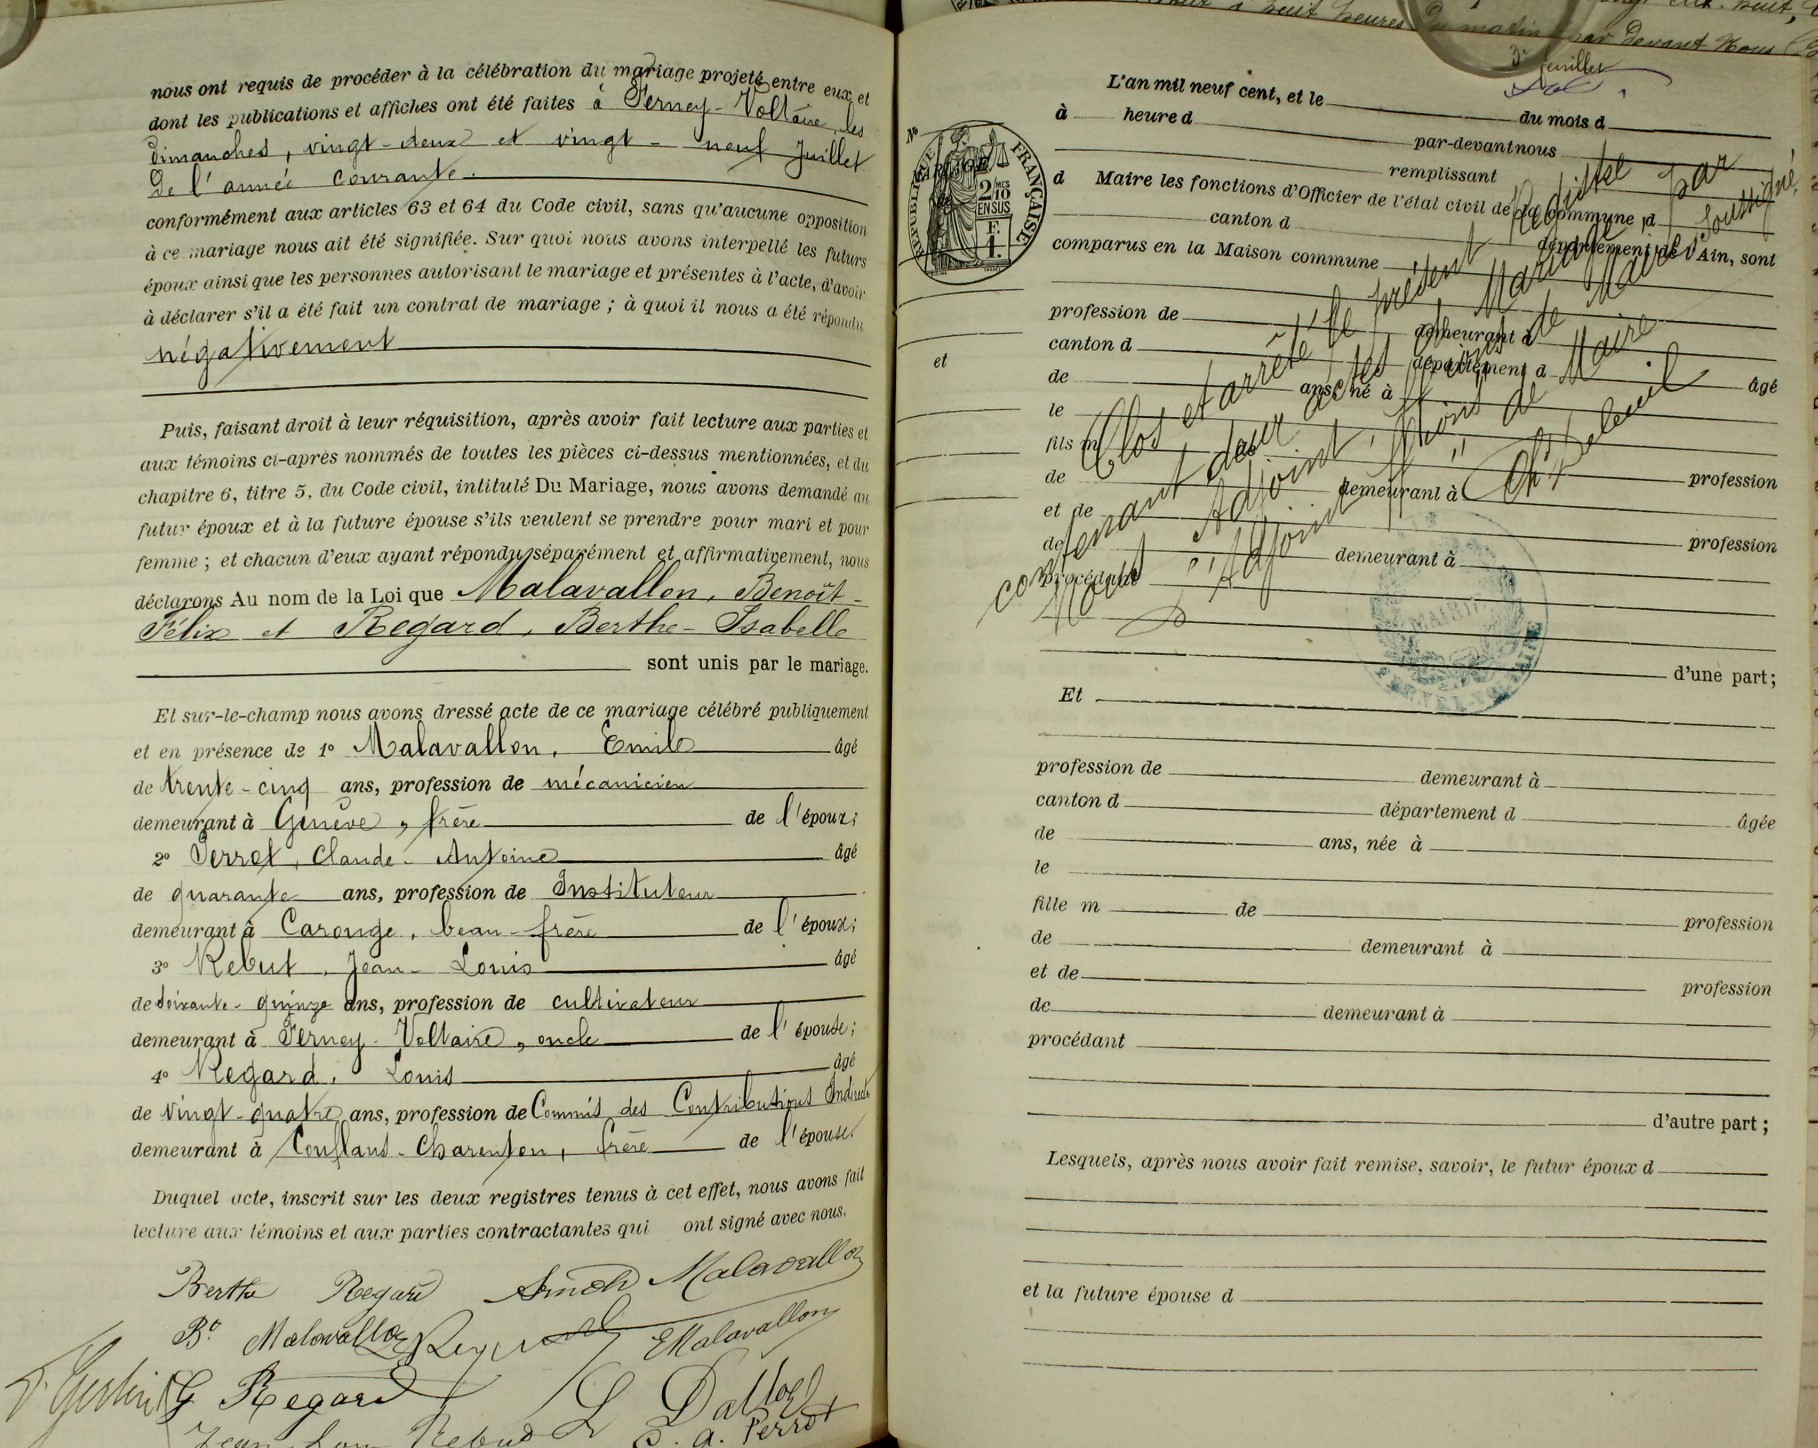 nous ont requis de procéder à la célébration du mariage projeté entre eux et
dont les publications et affiches ont été faites à Ferney-Voltaire, les
dimanches, vingt-deux et vingt-neuf Juillet
de l'année courante.
conformément aux articles 63 et 64 du Code civil, sans qu'aucune opposition
à ce mariage nous ait été signifiée. Sur quoi nous avons interpellé les futurs
époux ainsi que les personnes autorisant le mariage et présentes à l'acte, d'avoir
à déclarer s'il a été fait un contrat de mariage ; à quoi il nous a été répondu
négativement
Puis, faisant droit à leur réquisition, après avoir fait lecture aux parties et
aux témoins ci-après nommés de toutes les pièces ci-dessus mentionnées, et du
chapitre 6, titre 5, du Code civil, intitulé Du Mariage, nous avons demandé au
futur époux et à la future épouse s'ils veulent se prendre pour mari et pour
femme ; et chacun d'eux ayant répondu séparément et affirmativement, nous
déclarons Au nom de la Loi que Malavallon, Benoît-
Félix et Regard, Berthe-Isabelle
sont unis par le mariage.
Et sur-le-champ nous avons dressé acte de ce mariage célébré publiquement
et en présence de 1° Malavallon, Emile âgé
de trente-cinq ans, profession de mécanicien
demeurant à Genève, frère de l'époux;
2° Perrot, Claude-Antoine âgé
de quarante ans, profession de Instituteur
demeurant à Carouge, beau-frère de l'époux;
3° Rebut, Jean-Louis âgé
de soixante-quinze ans, profession de cultivateur
demeurant à Ferney-Voltaire, oncle de l'épouse;
4° Regard, Louis âgé
de vingt-quatre ans, profession de Commis des Contributions Indirectes
demeurant à Conflans-Charenton, frère de l'épouse.
Duquel acte, inscrit sur les deux registres tenus à cet effet, nous avons fait
lecture aux témoins et aux parties contractantes qui ont signé avec nous.
Berthe Regard Malavallon
Bt Malavallon E Malavallon
G Regard L
Jean Louis Rebut C. A. Perrot
3e feuillet
L'an mil neuf cent, et le du mois d
à heure d par-devant nous
remplissant
d Maire les fonctions d'Officier de l'état civil de la commune d
canton d département de l'Ain, sont
comparus en la Maison commune
profession de demeurant à
canton d département d
de ans, né à âgé
le
fils m
de demeurant à profession
et de
de demeurant à profession
procédant
d'une part;
N°
MARIAGE
de
et
RÉPUBLIQUE FRANÇAISE
2/10 MES
EN SUS
F.
1.
Clos et arrêté le présent Registre par
contenant deux actes de Mariage,
Nous Adjoint, ffions de Maire soussigné,
L'Adjoint ffions de Maire
MAIRIE
FERNEY-VOLTAIRE
Et
profession de demeurant à
canton d département d
de ans, née à âgée
le
fille m de profession
de demeurant à
et de profession
de demeurant à
procédant
d'autre part ;
Lesquels, après nous avoir fait remise, savoir, le futur époux d
et la future épouse d